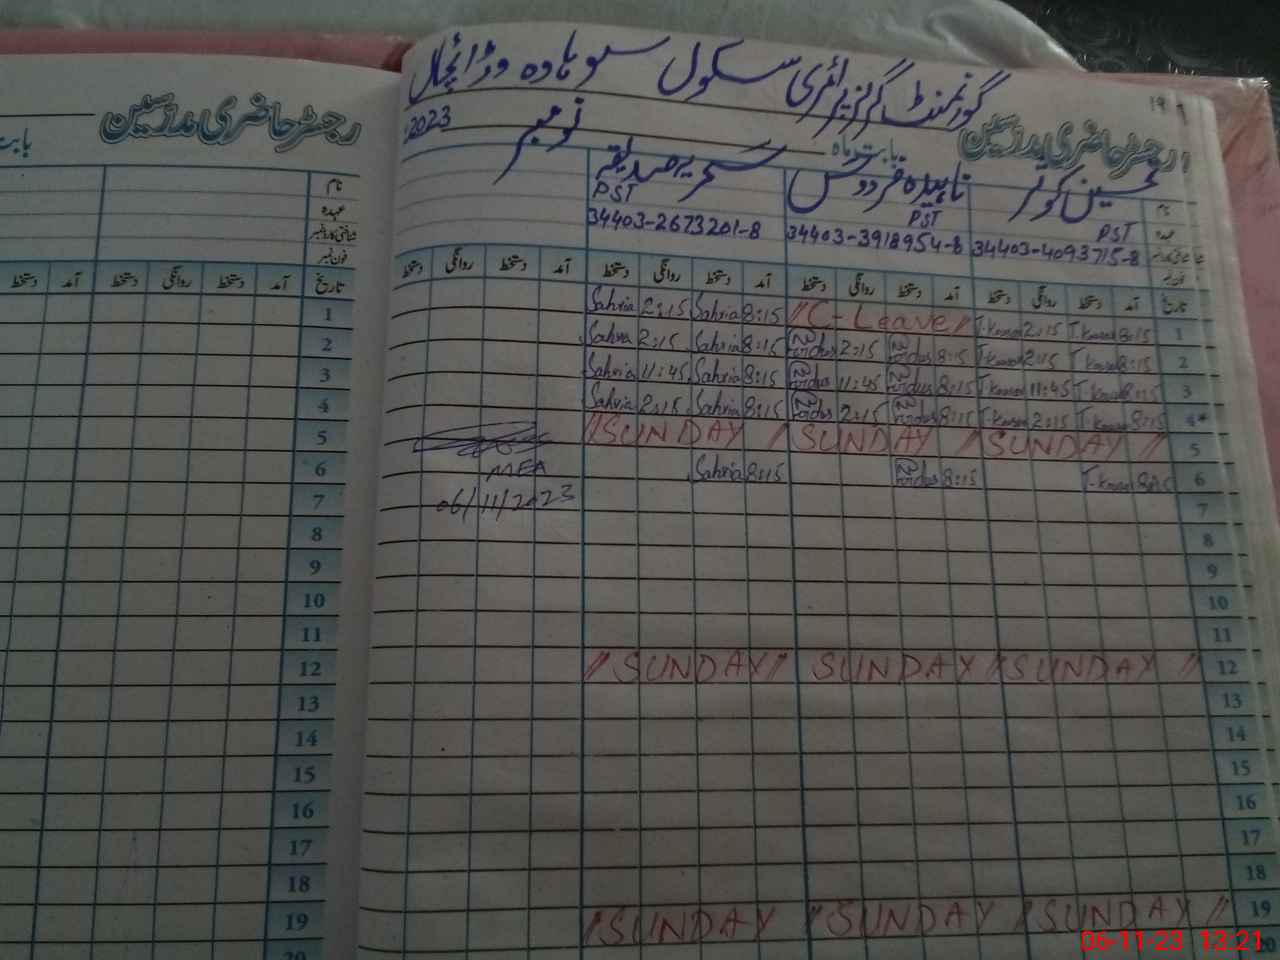 گورنمنٹ گرلز پرائمری سکول سوہاوہ وڑائچاں
رجسٹر حاضری مدرسین
رجسٹر حاضری مدرسین
بابت ماہ نومبر 2023
بابت
تحسین کوثر ناہیدہ فردوس سحریہ صدیقہ
نام
نام
PST PST PST
عہدہ
عہدہ
34403-4093715-8 34403-3918954-8 34403-2673201-8
شناختی کارڈ نمبر
فون نمبر
تاریخ آمد دستخط روانگی دستخط آمد دستخط روانگی دستخط آمد دستخط روانگی دستخط آمد دستخط روانگی دستخط
تاریخ آمد دستخط روانگی دستخط آمد دستخط
1 8:15 T.Kausar 2:15 T.Kausar // C-Leave // 8:15 Sahria 2:15 Sahria 1
2 8:15 T.Kausar 2:15 T.Kausar 8:15 Firdus 2:15 Firdus 8:15 Sahria 2:15 Sahria 2
3 8:15 T.Kausar 11:45 T.Kausar 8:15 Firdus 11:45 Firdus 8:15 Sahria 11:45 Sahria 3
4 8:15 T.Kausar 2:15 T.Kausar 8:15 Firdus 2:15 Firdus 8:15 Sahria 2:15 Sahria 4
5 // SUNDAY // SUNDAY // SUNDAY // 5
6 8:15 T.Kausar 8:15 Firdus 8:15 Sahria MEA 6
7 06/11/2023 7
8 8
9 9
10 10
11 11
12 // SUNDAY // SUNDAY // SUNDAY // 12
13 13
14 14
15 15
16 16
17 17
18 18
19 // SUNDAY // SUNDAY // SUNDAY // 19
20 20
06-11-23 13:21